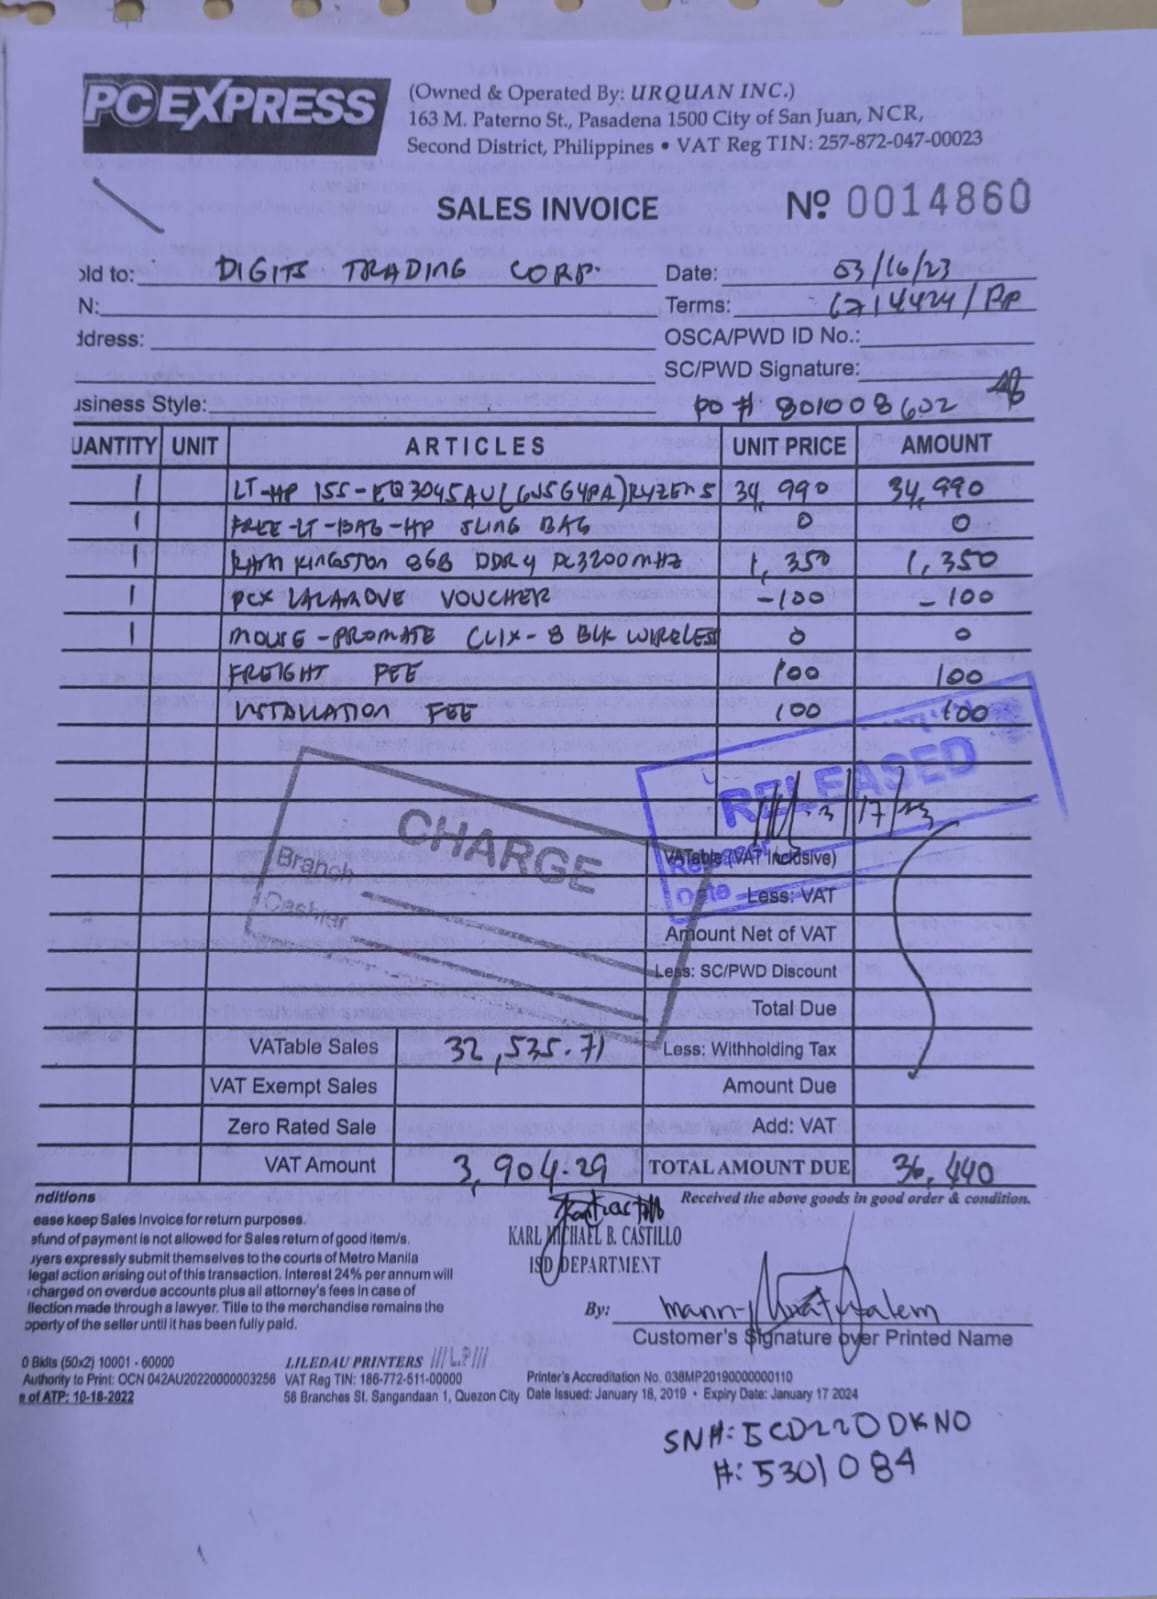 PCEXPRESS
(Owned & Operated By: URQUAN INC.)
163 M. Paterno St., Pasadena 1500 City of San Juan, NCR,
Second District, Philippines • VAT Reg TIN: 257-872-047-00023
SALES INVOICE
Nº 0014860
old to: DIGITS TRADING CORP.
Date: 03/16/23
N:
Terms: 6214424/PP
ddress:
OSCA/PWD ID No.:
SC/PWD Signature:
usiness Style:
PO # 801008602
UANTITY UNIT ARTICLES UNIT PRICE AMOUNT
1 LT-HP 15S-EQ3045AU(6W5G4PA)RYZEN 5 34,990 34,990
1 FREE-LT-BAG-HP SLING BAG 0 0
1 RAM KINGSTON 8GB DDR4 PC3200MHZ 1,350 1,350
1 PCX LALAMOVE VOUCHER -100 -100
1 MOUSE-PROMATE CLIX-8 BLK WIRELESS 0 0
FREIGHT FEE 100 100
INSTALLATION FEE 100 100
RELEASED
3/17/23
CHARGE
Branch
Cashier
Date
VATable (VAT Inclusive)
Less: VAT
Amount Net of VAT
Less: SC/PWD Discount
Total Due
VATable Sales 32,535.71 Less: Withholding Tax
VAT Exempt Sales Amount Due
Zero Rated Sale Add: VAT
VAT Amount 3,904.29 TOTAL AMOUNT DUE 36,440
nditions
Received the above goods in good order & condition.
ease keep Sales Invoice for return purposes.
efund of payment is not allowed for Sales return of good item/s.
uyers expressly submit themselves to the courts of Metro Manila
legal action arising out of this transaction. Interest 24% per annum will
charged on overdue accounts plus all attorney's fees in case of
llection made through a lawyer. Title to the merchandise remains the
operty of the seller until it has been fully paid.
KARL MICHAEL B. CASTILLO
ISD DEPARTMENT
By:
Customer's Signature over Printed Name
0 Bklts (50x2) 10001 - 60000
Authority to Print: OCN 042AU20220000003256
e of ATP: 10-18-2022
LILEDAU PRINTERS
VAT Reg TIN: 186-772-511-00000
58 Branches St. Sangandaan 1, Quezon City
Printer's Accreditation No. 038MP20190000000110
Date Issued: January 18, 2019 • Expiry Date: January 17 2024
SN#: 5CD220DKN0
#: 5301084